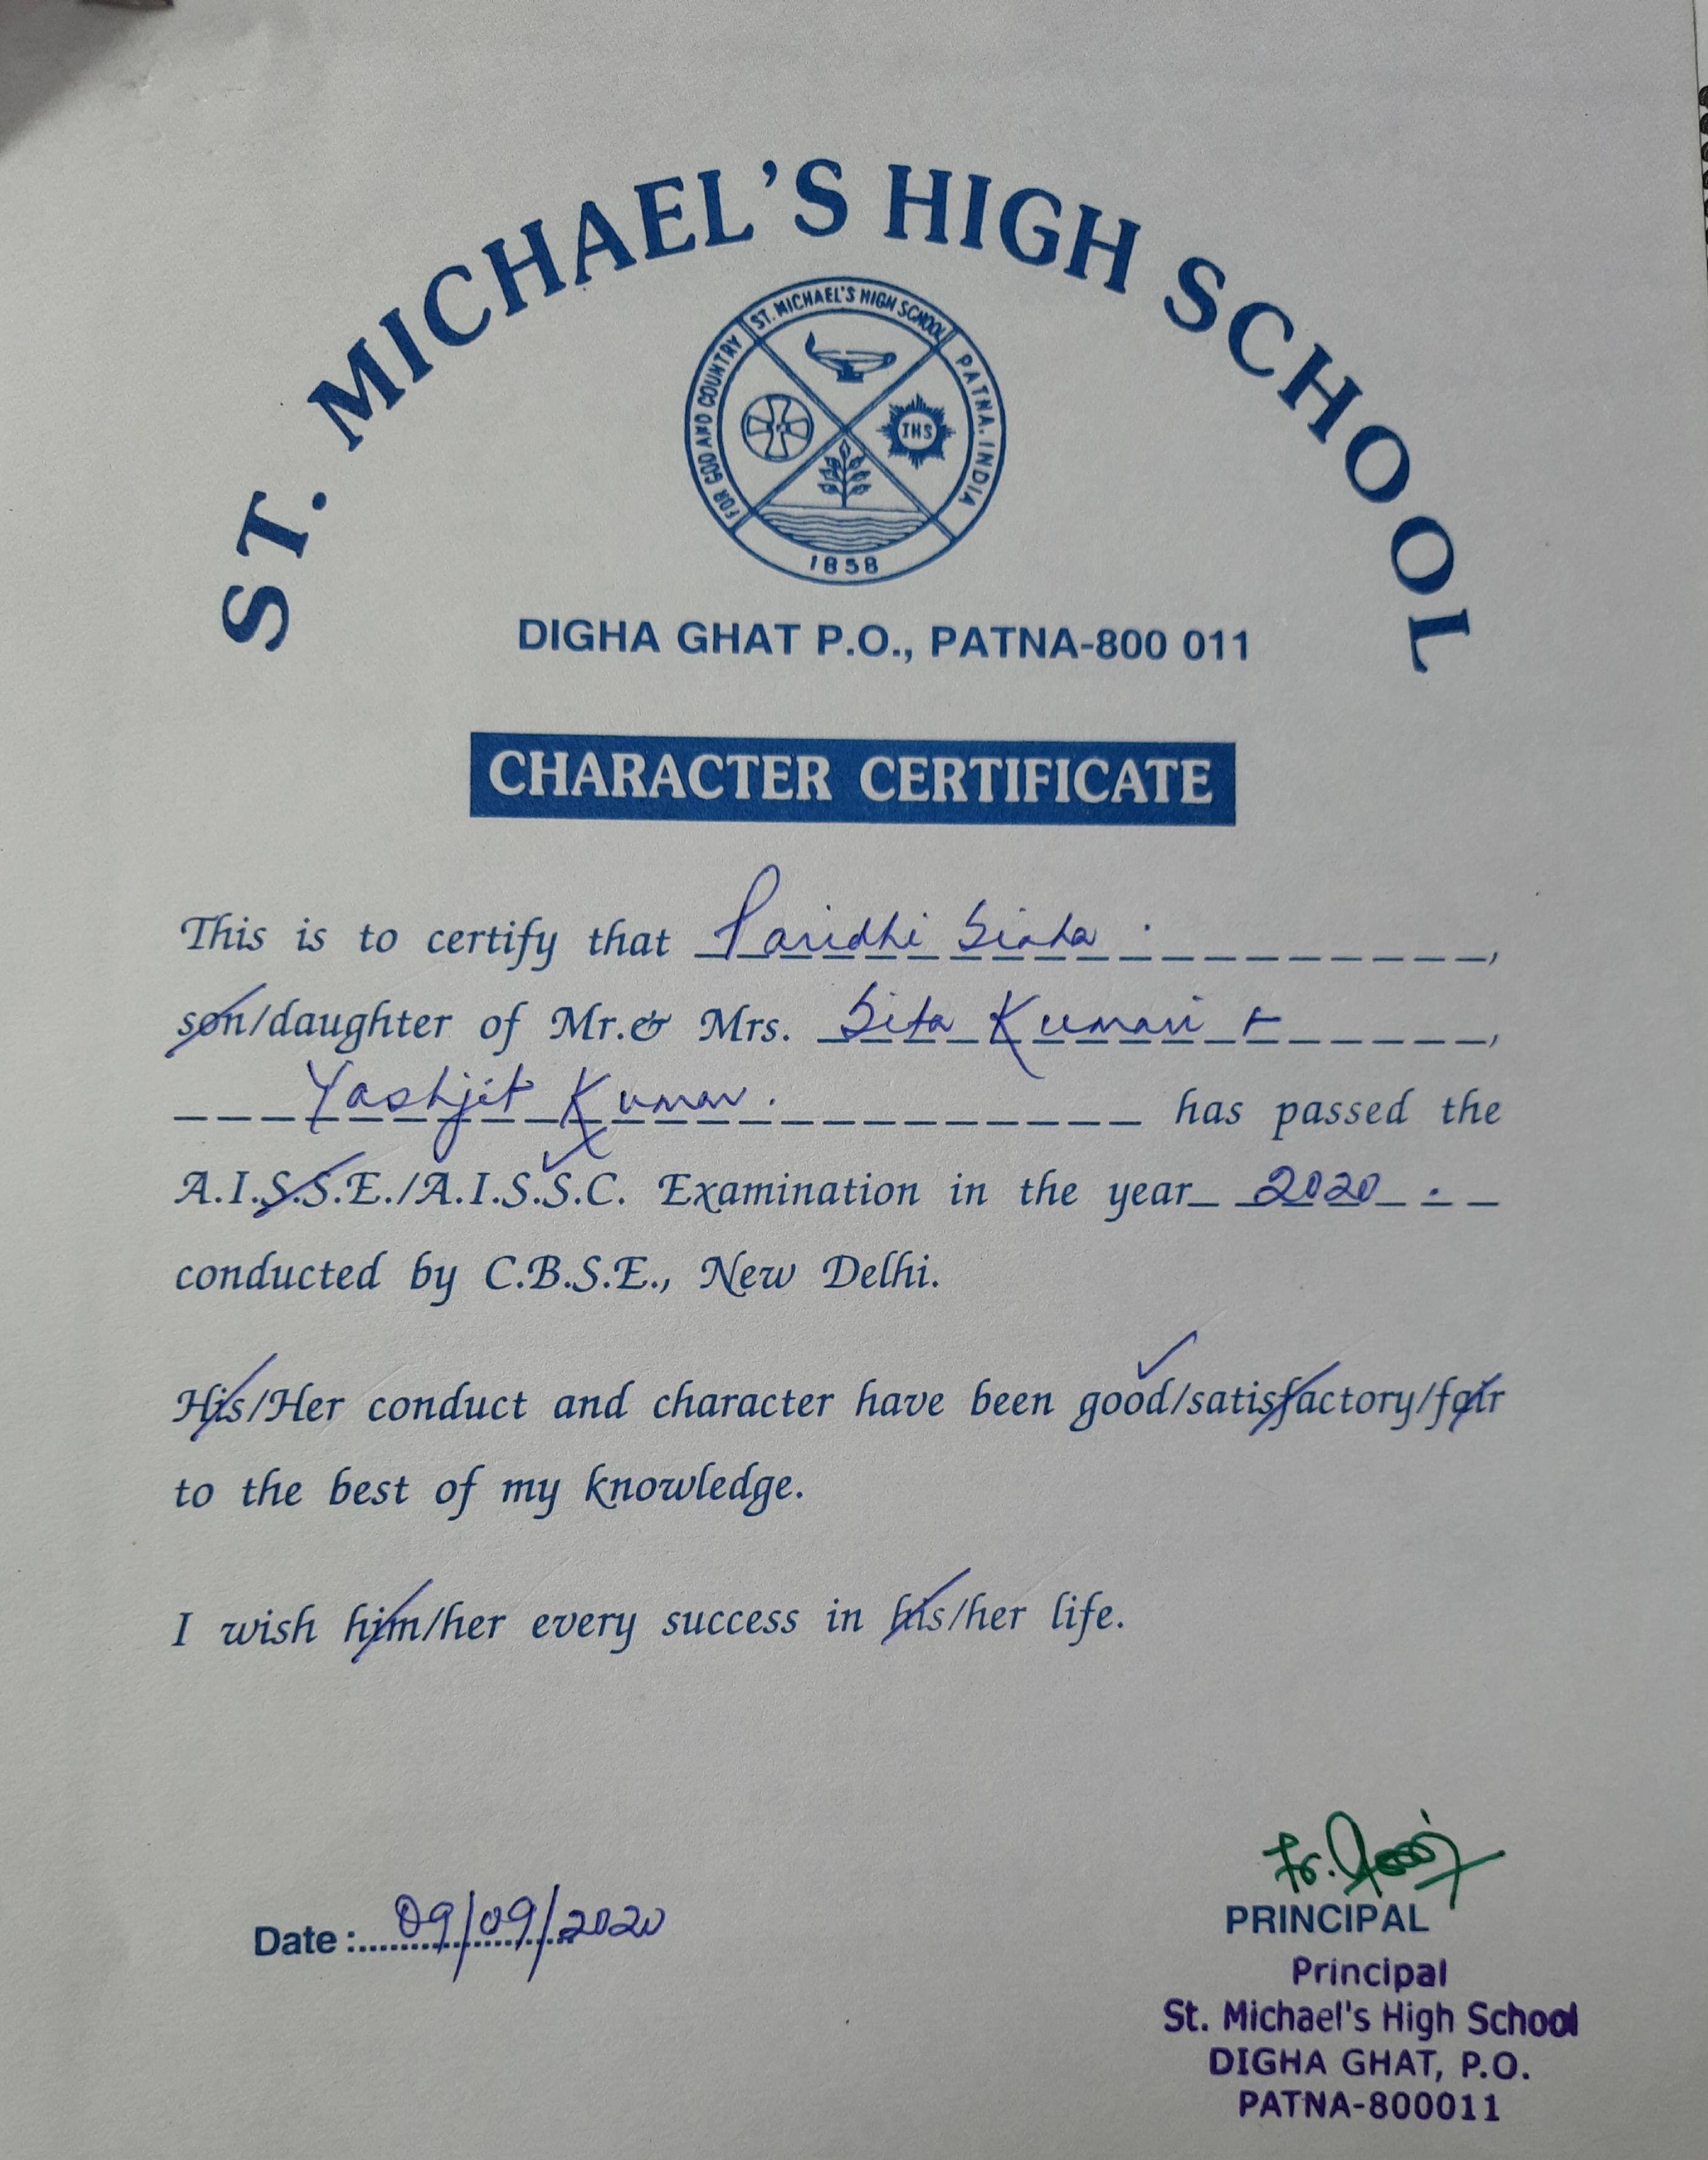 ST. MICHAEL'S HIGH SCHOOL
ST. MICHAEL'S HIGH SCHOOL
PATNA, INDIA
FOR GOD AND COUNTRY
IHS
1858
DIGHA GHAT P.O., PATNA-800 011
CHARACTER CERTIFICATE
This is to certify that Paridhi Sinha.,
son/daughter of Mr.& Mrs. Sita Kumari +,
Yashjit Kumar. has passed the
A.I.S.S.E./A.I.S.S.C. Examination in the year 2020.
conducted by C.B.S.E., New Delhi.
His/Her conduct and character have been good/satisfactory/fair
to the best of my knowledge.
I wish him/her every success in his/her life.
Fr.
Date :09/09/2020
PRINCIPAL
Principal
St. Michael's High School
DIGHA GHAT, P.O.
PATNA-800011